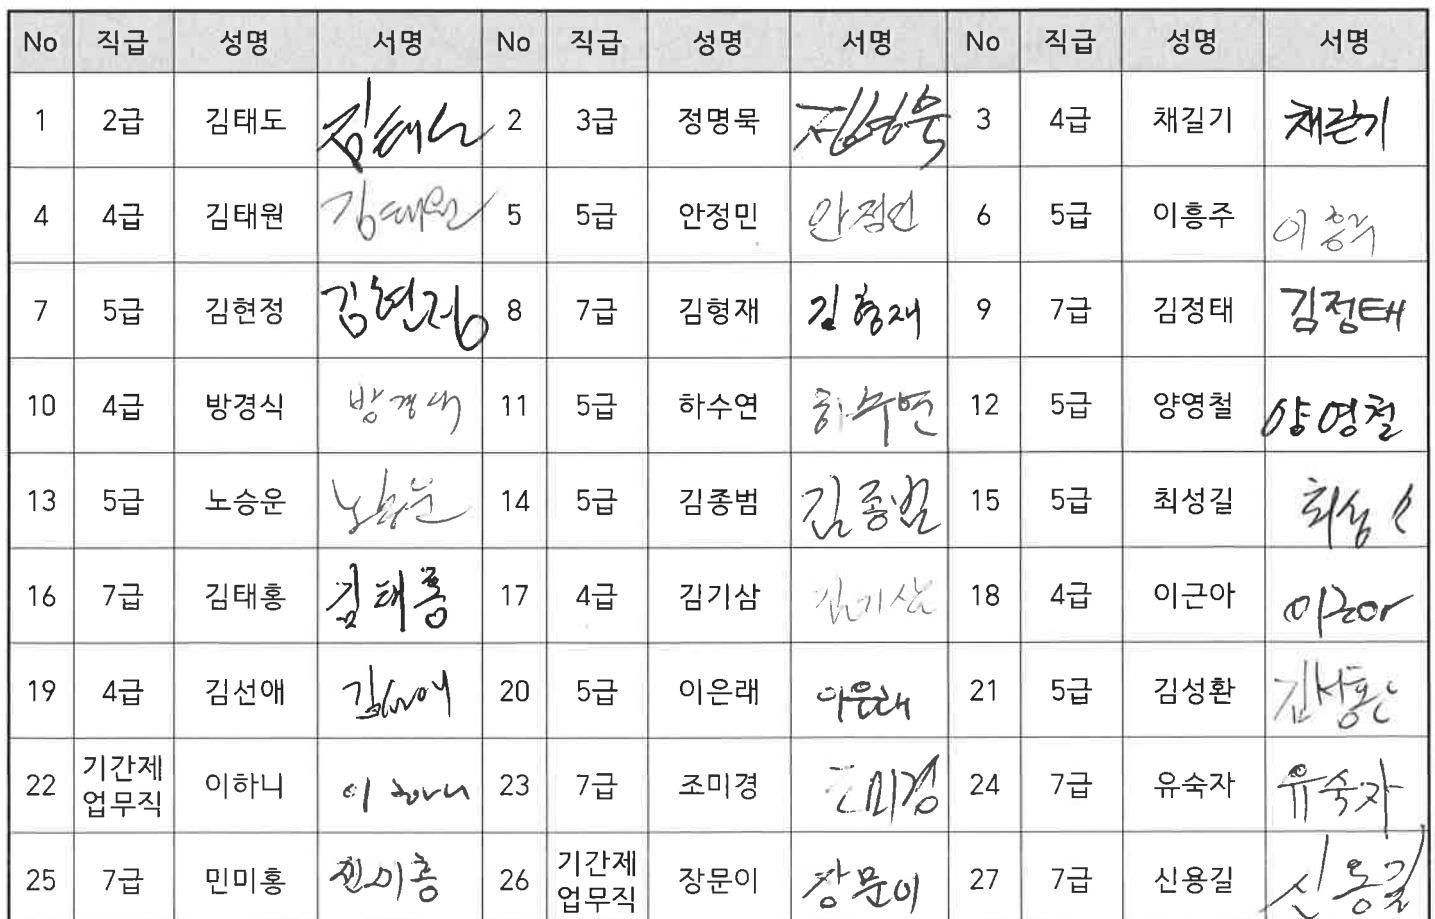 No 직급 성명 서명 No 직급 성명 서명 No 직급 성명 서명
1 2급 김태도 김태도 2 3급 정명묵 정명묵 3 4급 채길기 채길기
4 4급 김태원 김태원 5 5급 안정민 안정민 6 5급 이흥주 이흥주
7 5급 김현정 김현정 8 7급 김형재 김형재 9 7급 김정태 김정태
10 4급 방경식 방경식 11 5급 하수연 하수연 12 5급 양영철 양영철
13 5급 노승운 노승운 14 5급 김종범 김종범 15 5급 최성길 최성
16 7급 김태홍 김태홍 17 4급 김기삼 김기삼 18 4급 이근아 이근아
19 4급 김선애 김선애 20 5급 이은래 이은래 21 5급 김성환
22 기간제 업무직 이하니 이하니 23 7급 조미경 조미경 24 7급 유숙자 유숙자
25 7급 민미홍 민미홍 26 기간제 업무직 장문이 장문이 27 7급 신용길 신용길